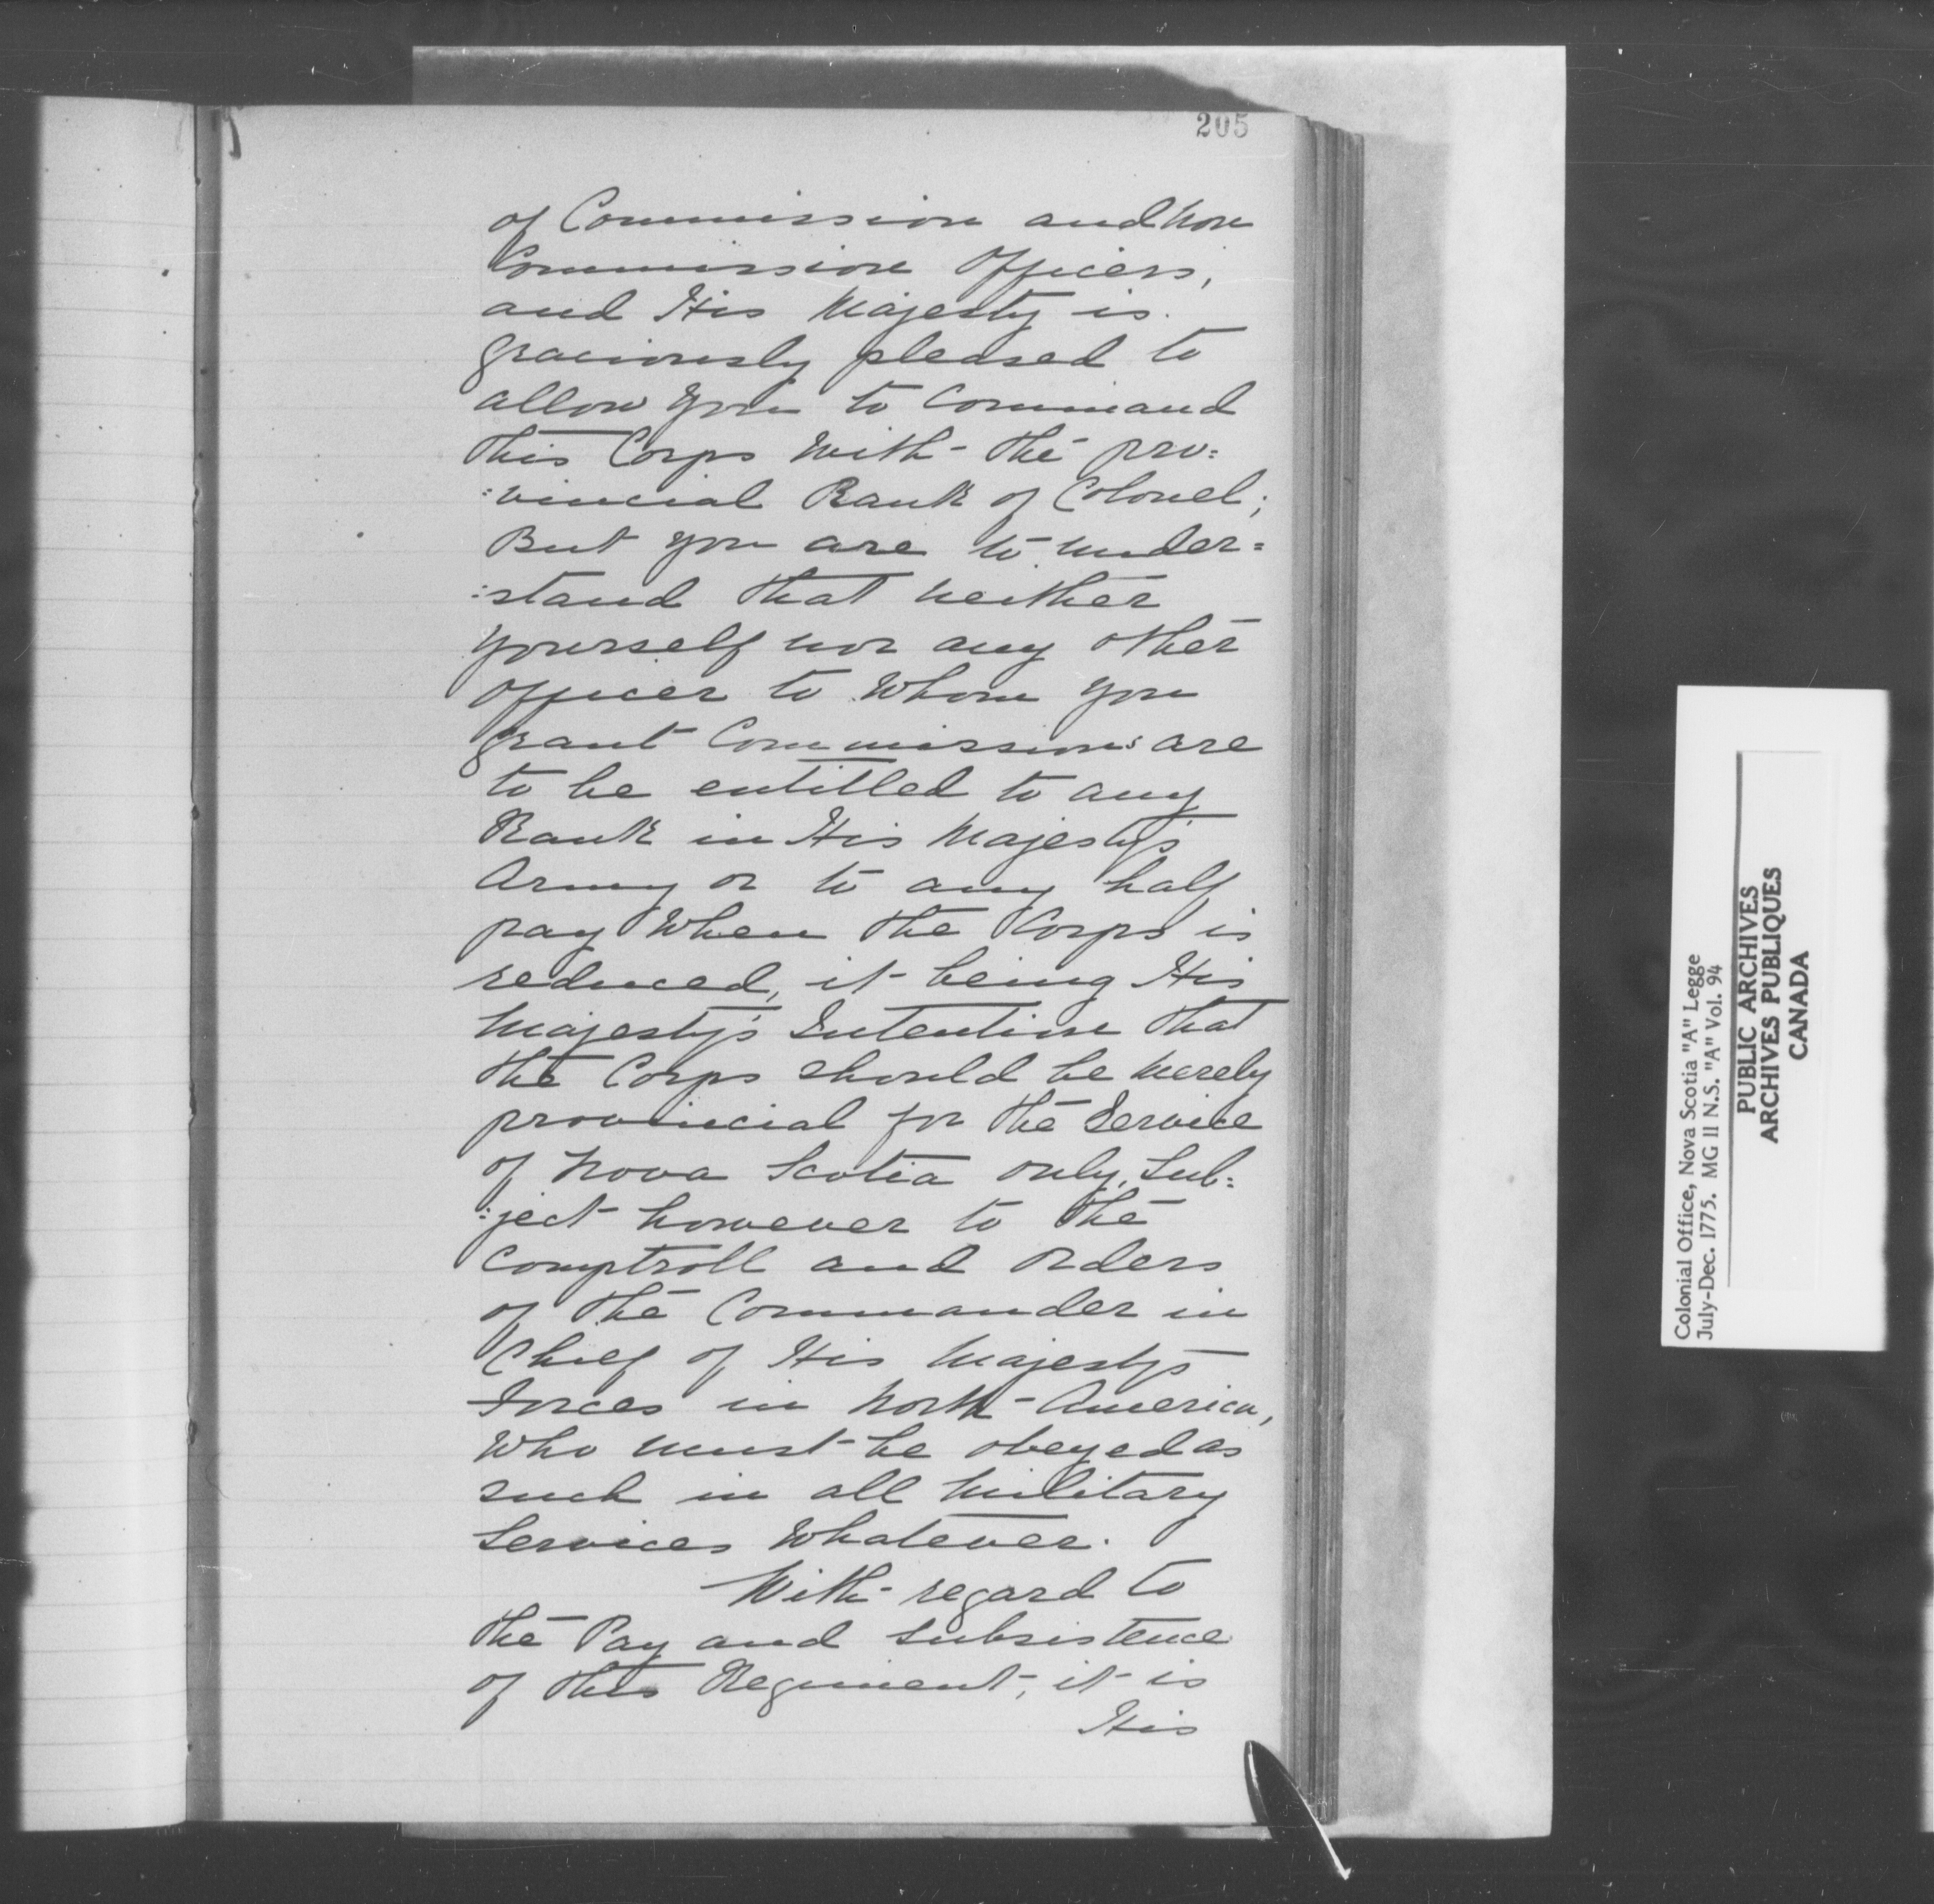 205
of Commission and Non
Commission Officers,
and His Majesty is
graciously pleased to
allow you to Command
this Corps with the pro=
:vincial Rank of Colonel;
But you are to under=
:stand that neither
yourself nor any other
officer to whom you
grant Commissions are
to be entitled to any
Rank in His Majesty's
Army or to any half
pay when the Corps is
reduced, it being His
Majesty's Intention that
the Corps should be merely
provincial for the Service
of Nova Scotia only, Sub=
:ject however to the
Comptroll and Orders
of the Commander in
Chief of His Majesty's
Forces in North America,
who must be obeyed as
such in all Military
Services whatever.
With regard to
the Pay and subsistence
of this Regiment, it is
His
Colonial Office, Nova Scotia "A" Legge
July-Dec. 1775. MG 11 N.S. "A" Vol. 94
PUBLIC ARCHIVES
ARCHIVES PUBLIQUES
CANADA